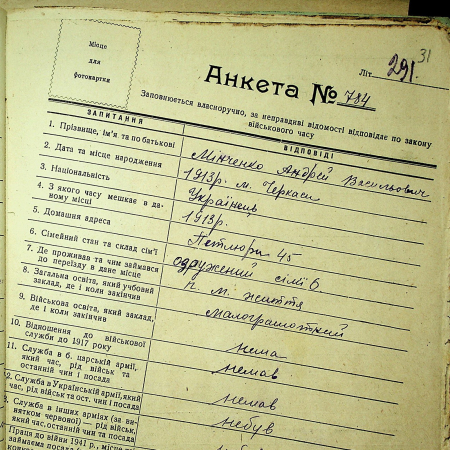 31
Літ. 291.
Місце
для
фотокартки
Анкета № 784
Заповнюється власноручно, за неправдиві відомості відповідає по закону
військового часу
ЗАПИТАННЯ
ВІДПОВІДІ
1. Прізвище, ім'я та по батькові
Мінченко Андрій Васильович
2. Дата та місце народження
1913р. м. Черкаси
3. Національність
Українець
4. З якого часу мешкає в да-
ному місці
1913р.
5. Домашня адреса
Петлюри 45
6. Сімейний стан та склад сім'ї
одружений сімї 6
7. Де проживав та чим займався
до переїзду в дане місце
п. м. життя
8. Загальна освіта, який учбовий
заклад, де і коли закінчив
малограмоткий
9. Військова освіта, який заклад,
де і коли закінчив
нема
10. Відношення до військової
служби до 1917 року
немав
11. Служба в б. царській армії,
який час, рід військ та
останній чин і посада
немав
12. Служба в Українській армії, який
час, рід військ та ост. чин і посада
небув
3. Служба в інших арміях (за ви-
нятком червоної) — рід військ,
який час, останній чин та посада
Праця до війни 1941 р., місце
займаєма посада